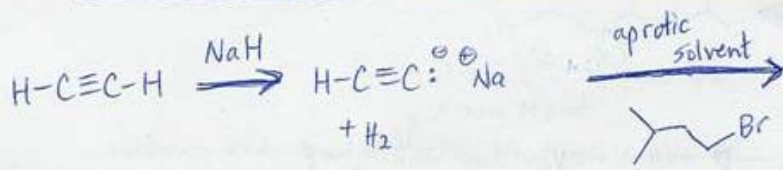 H-C≡C-H NaH H-C≡C:⊖ ⊕Na aprotic solvent
+ H₂ Br